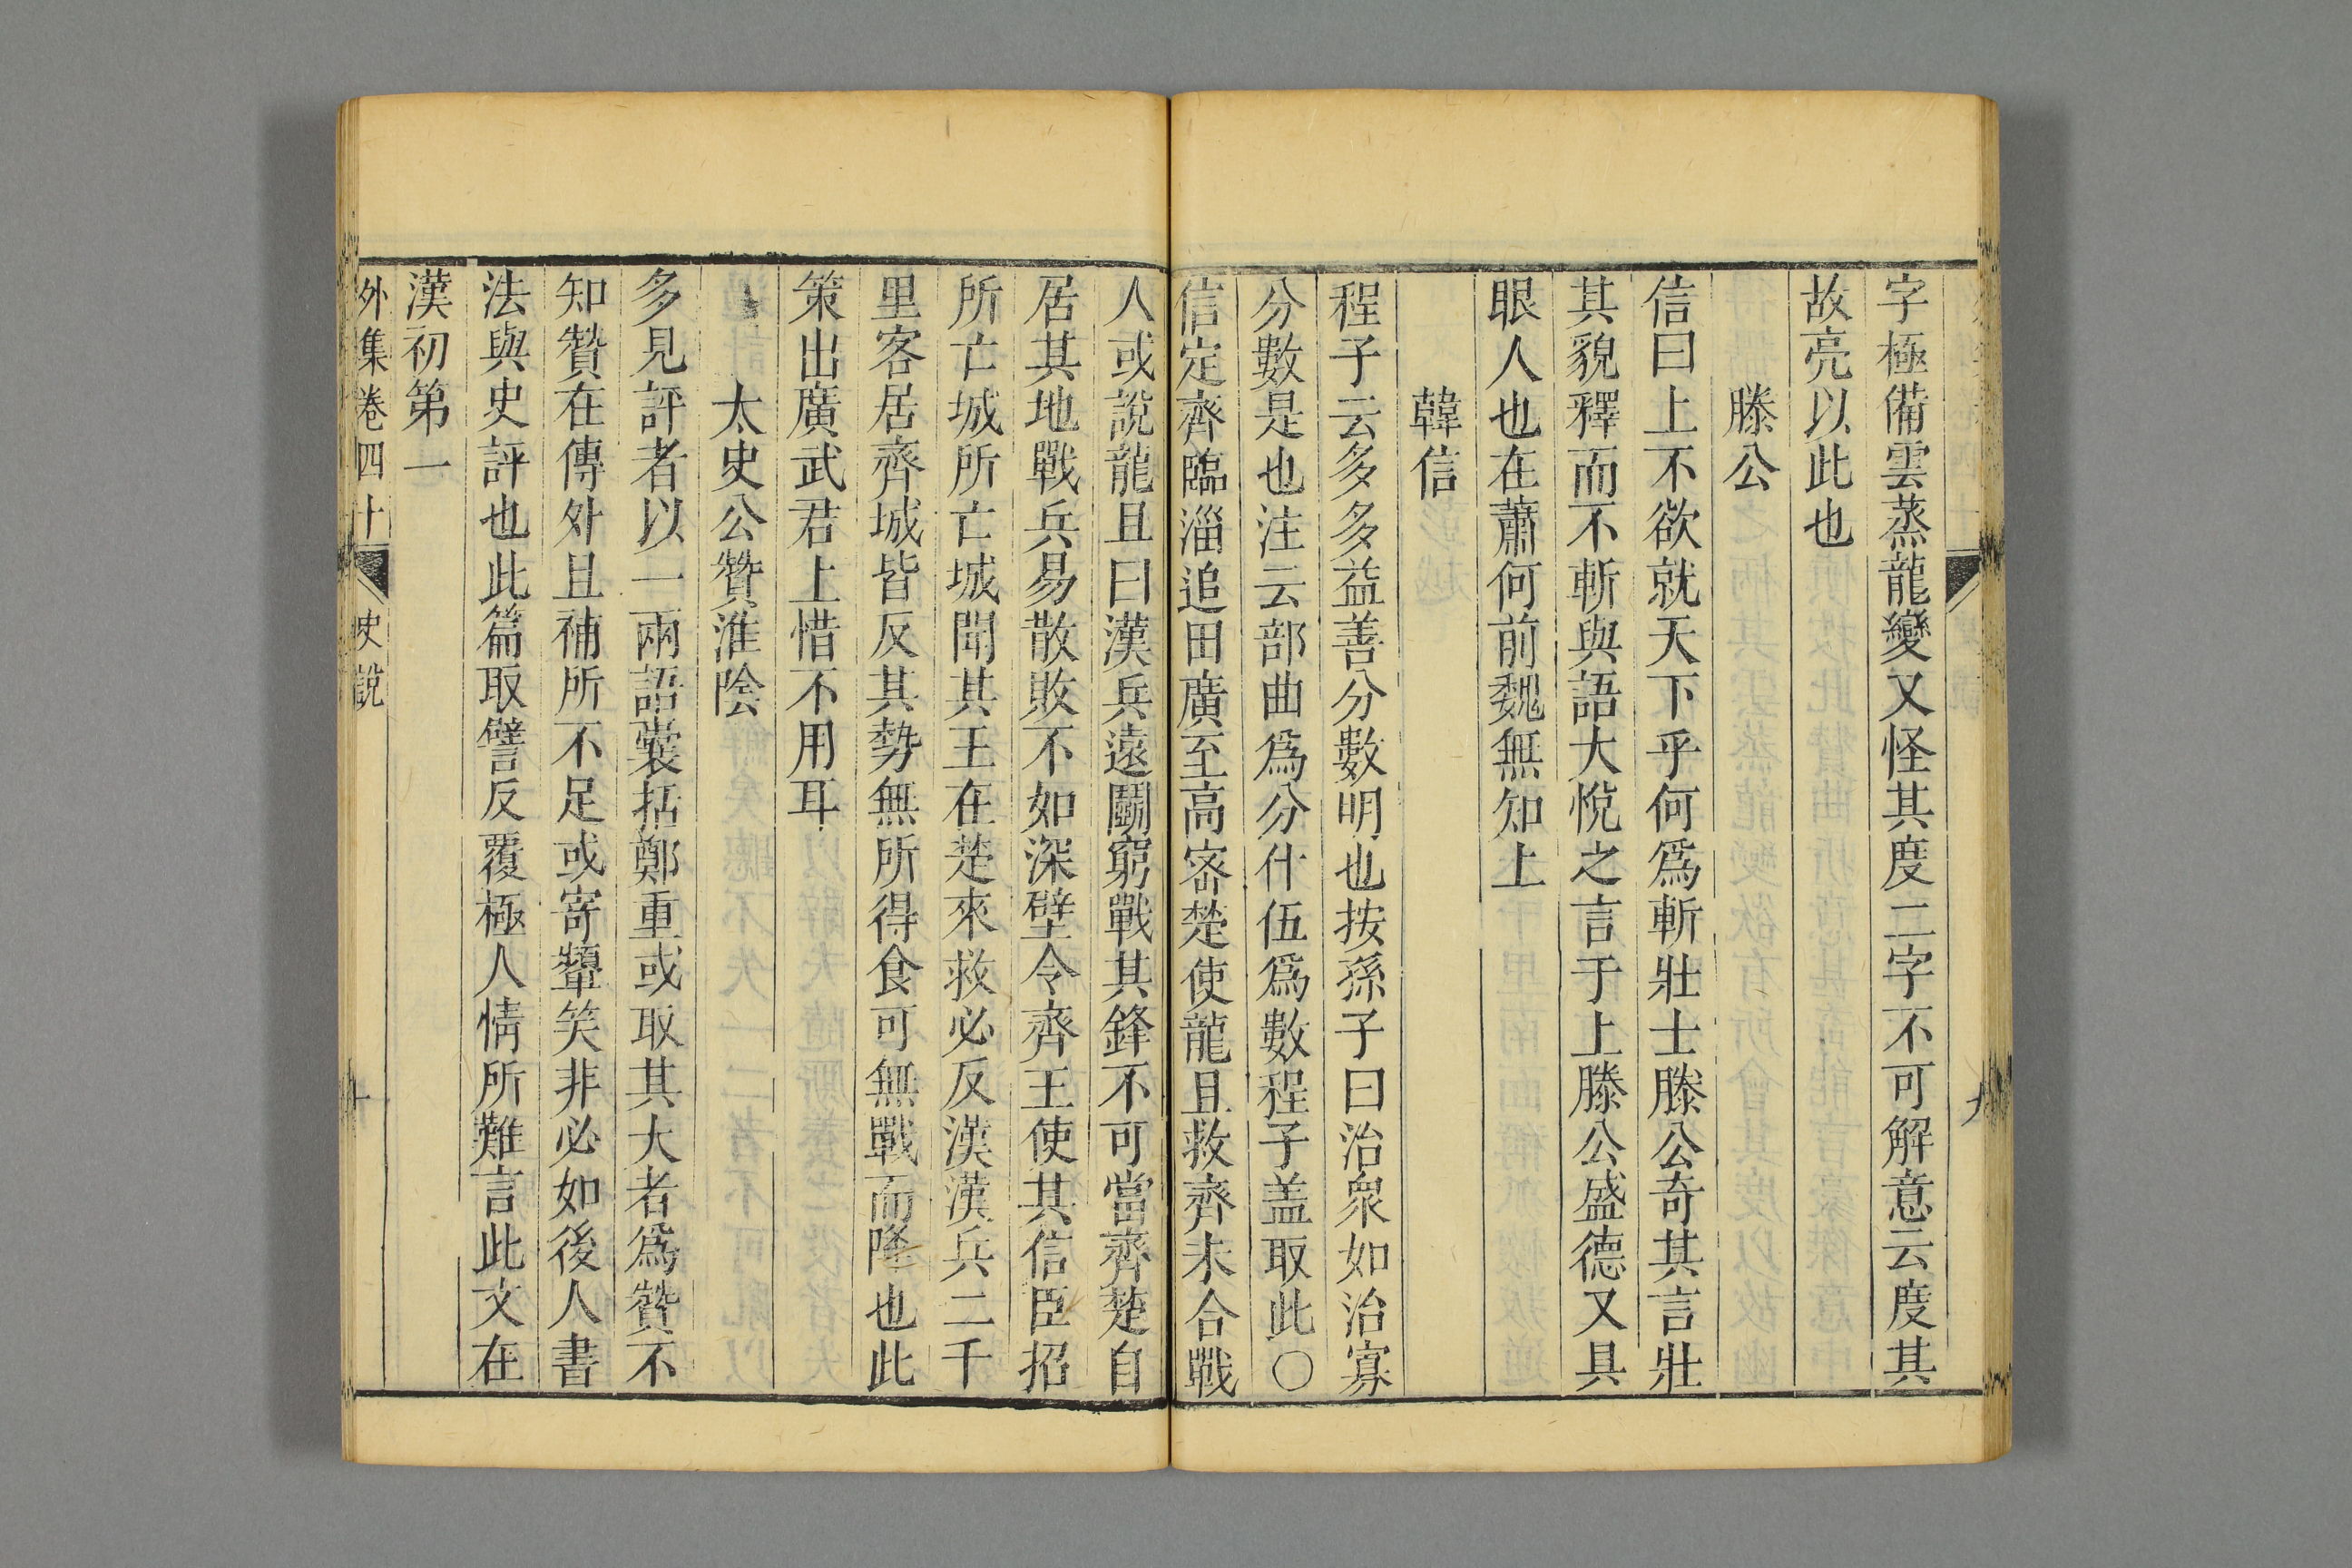 字極備雲蒸龍變又怪其度二字不可解意云度其
故亮以此也
滕公
信曰上不欲就天下乎何爲斬壯士滕公奇其言壯
其貌釋而不斬與語大悅之言于上滕公盛德又具
眼人也在蕭何前魏無知上
韓信
程子云多多益善分數明也按孫子曰治衆如治寡
分數是也注云部曲爲分什伍爲數程子盖取此〇
信定齊臨淄追田廣至高密楚使龍且救齊未合戰
人或說龍且曰漢兵遠鬭窮戰其鋒不可當齊楚自
居其地戰兵易散敗不如深壁令齊王使其信臣招
所亡城所亡城聞其王在楚來救必反漢漢兵二千
里客居齊城皆反其勢無所得食可無戰而降也此
策出廣武君上惜不用耳
太史公贊淮陰
多見評者以一兩語囊括鄭重或取其大者爲贊不
知贊在傳外且補所不足或寄顰笑非必如後人書
法與史評也此篇取譬反覆極人情所難言此文在
漢初第一
外集卷四十 史說 十